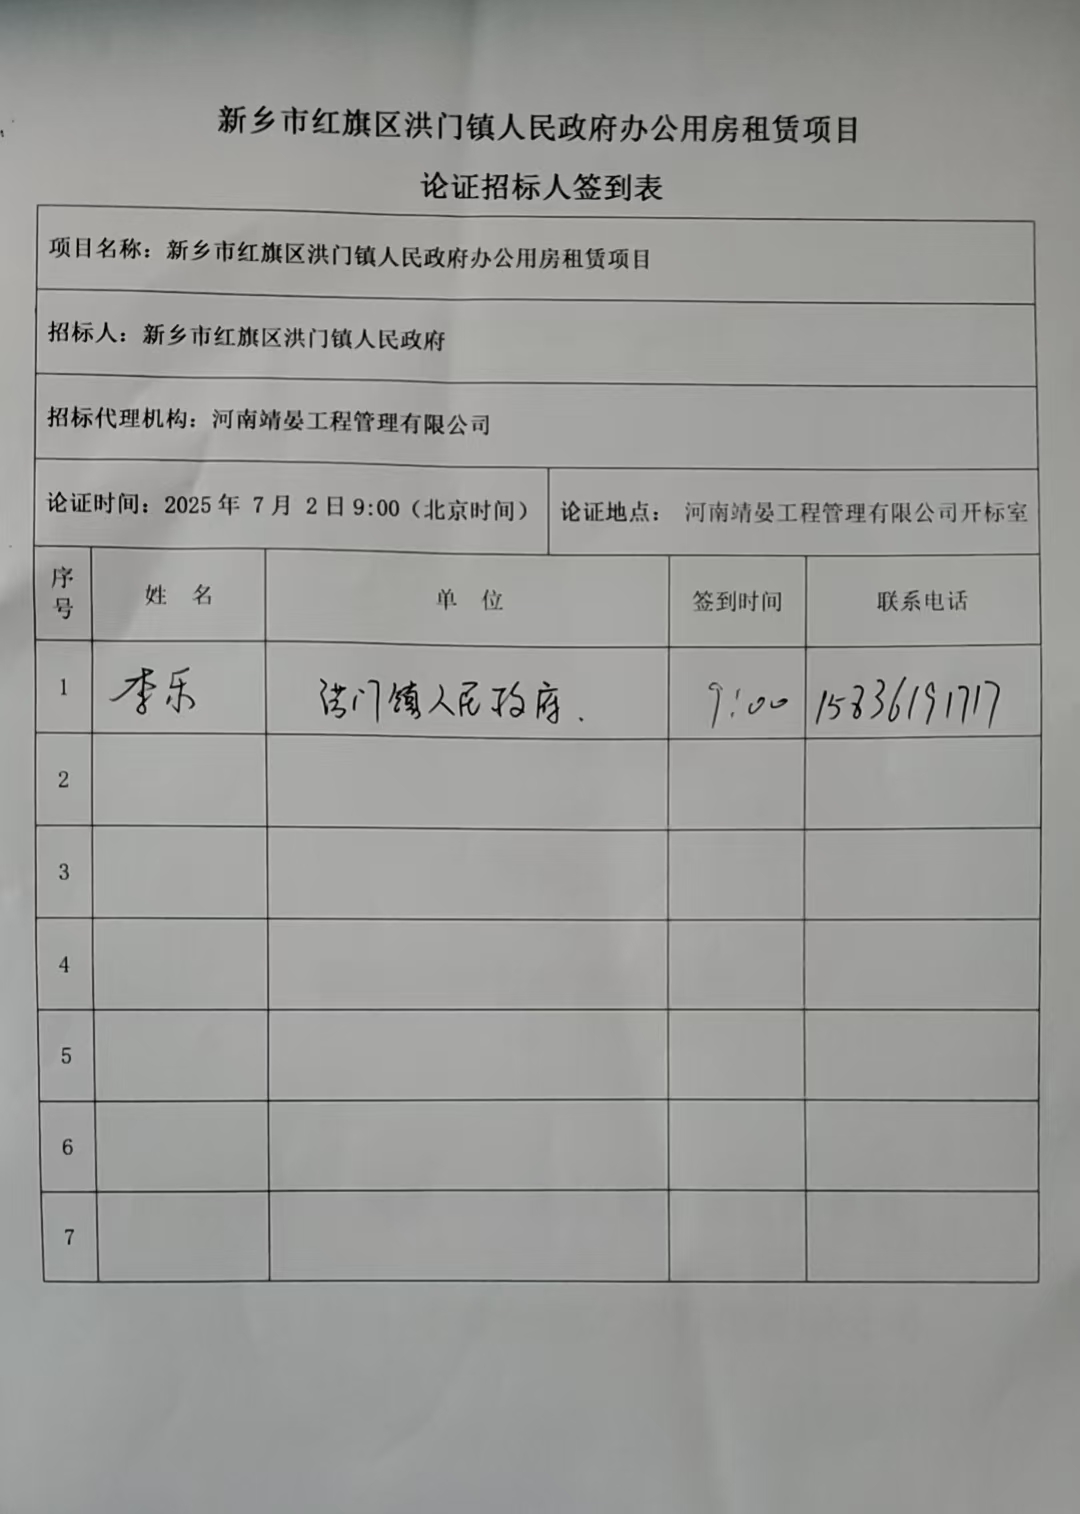 新乡市红旗区洪门镇人民政府办公用房租赁项目
论证招标人签到表
项目名称：新乡市红旗区洪门镇人民政府办公用房租赁项目
招标人：新乡市红旗区洪门镇人民政府
招标代理机构：河南靖晏工程管理有限公司
论证时间：2025年 7月 2日9:00（北京时间） 论证地点： 河南靖晏工程管理有限公司开标室
序号 姓 名 单 位 签到时间 联系电话
1 李乐 洪门镇人民政府. 9:00 15836191717
2
3
4
5
6
7